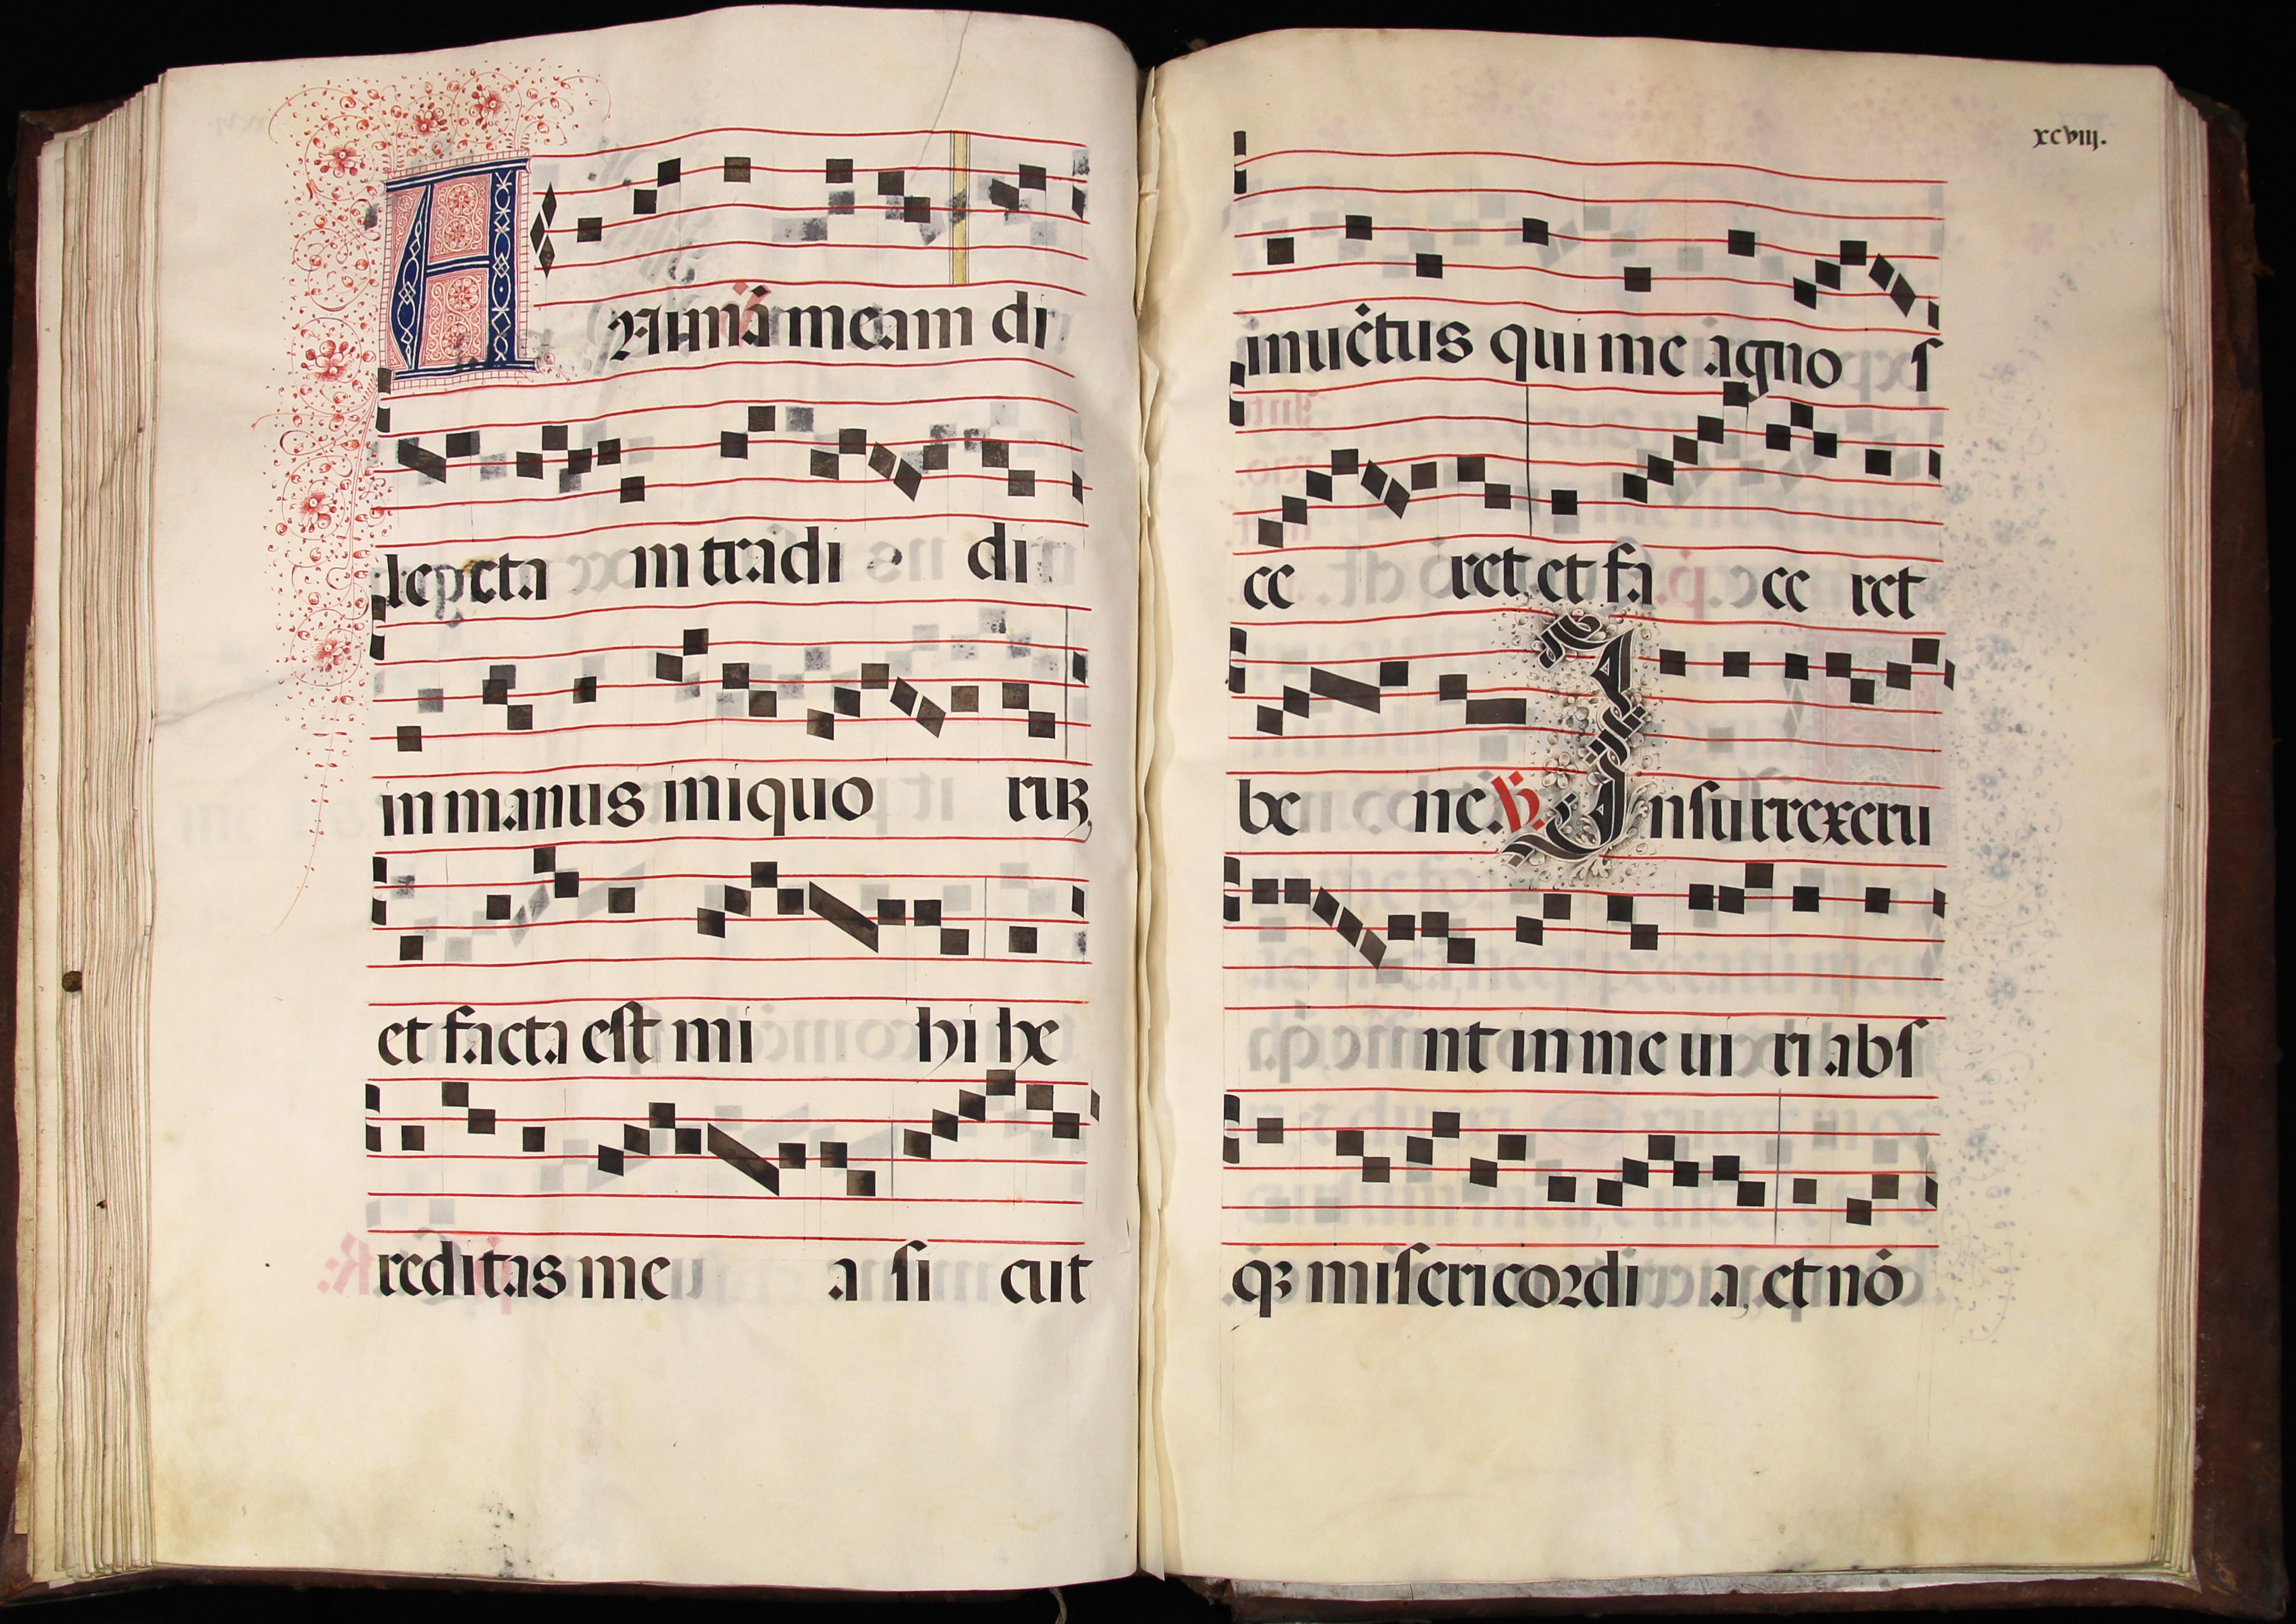 AAnimā meam di
lecta m tradi di
in manus iniquo ruꝫ,
et facta est mi hi he
reditas me a si cut
xcviij.
inuētus qui me agno s
ce ret, et fa ce ret
be ne. ℣. Insurrexeru
nt in me ui ri abs
qꝫ misericordi a, et nō